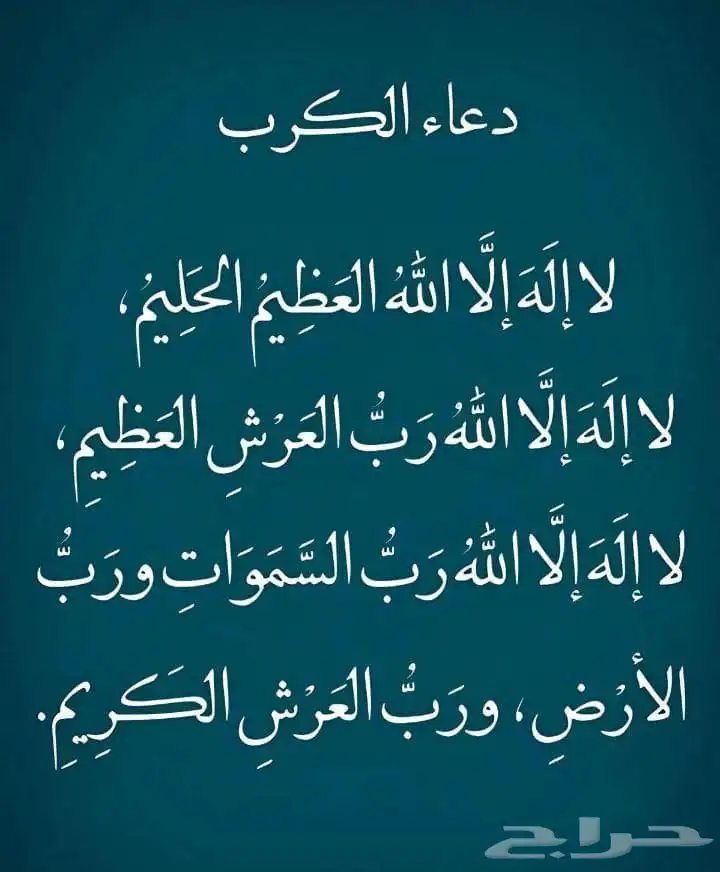 دعاء الكرب
لا إلَهَ إلَّا اللَّهُ العَظِيمُ الحَلِيمُ،
لا إلَهَ إلَّا اللَّهُ رَبُّ العَرْشِ العَظِيمِ،
لا إلَهَ إلَّا اللَّهُ رَبُّ السَّمَوَاتِ ورَبُّ
الأرْضِ، ورَبُّ العَرْشِ الكَرِيمِ.
حراج